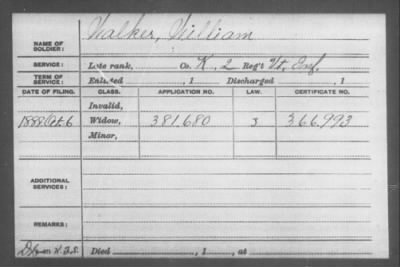 Walker, William
NAME OF SOLDIER:
SERVICE: Late rank, Co. K, 2 Reg't Vt. Inf.
TERM OF SERVICE: Enlisted , 1 Discharged , 1
DATE OF FILING. CLASS. APPLICATION NO. LAW. CERTIFICATE NO.
Invalid,
1888 Oct. 6 Widow, 381.680 3 366.993
Minor,
ADDITIONAL SERVICES:
REMARKS:
Died , 1 , at